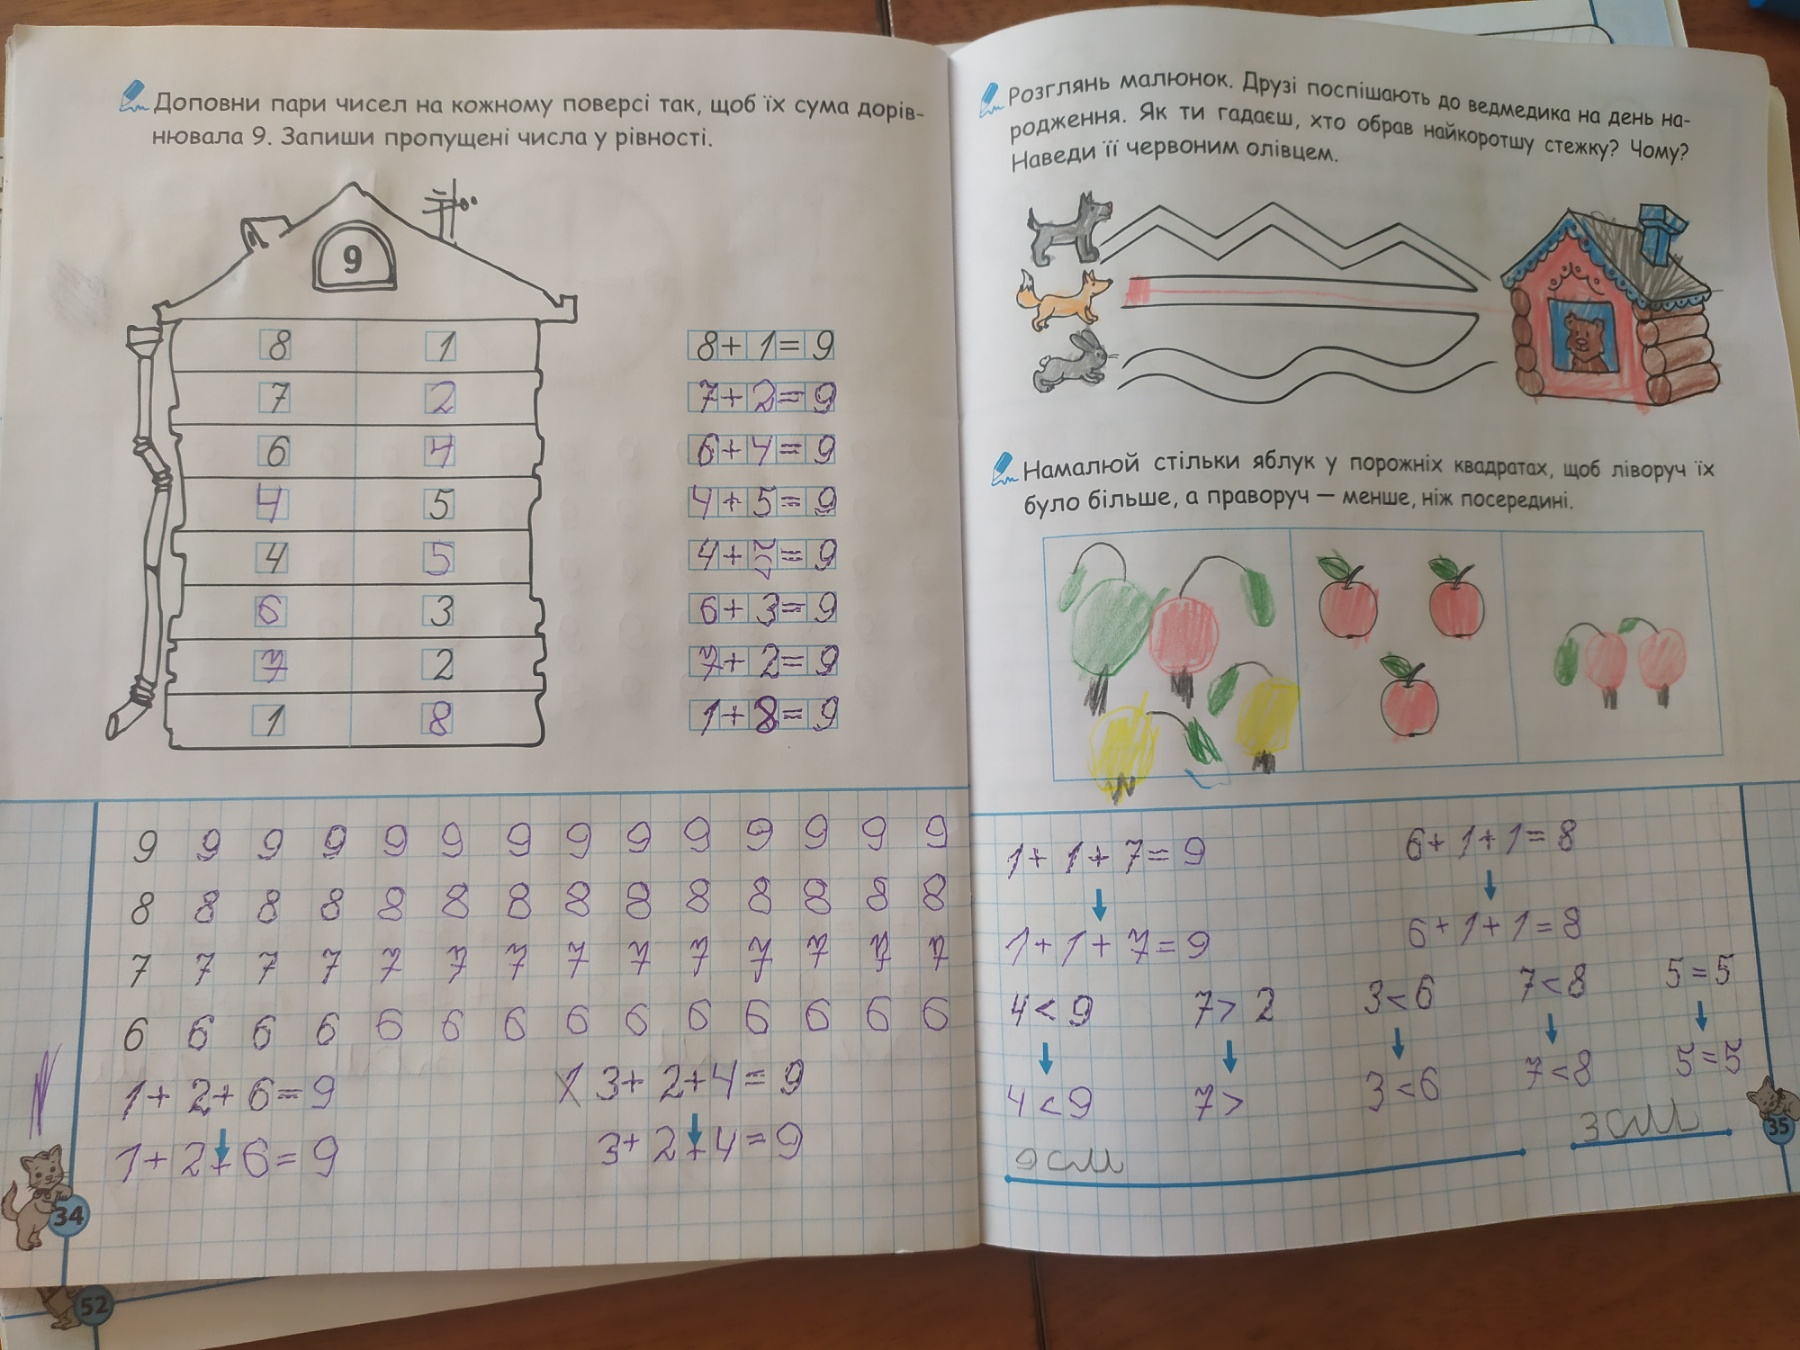 Доповни пари чисел на кожному поверсі так, щоб їх сума дорів-
нювала 9. Запиши пропущені числа у рівності.
9
8 1
7 2
6 4
4 5
4 5
6 3
7 2
1 8
8+1=9
7+2=9
6+4=9
4+5=9
4+5=9
6+3=9
7+2=9
1+8=9
9 9 9 9 9 9 9 9 9 9 9 9 9 9
8 8 8 8 8 8 8 8 8 8 8 8 8 8
7 7 7 7 7 7 7 7 7 7 7 7 7 7
6 6 6 6 6 6 6 6 6 6 6 6 6 6
1+2+6=9 3+2+4=9
1+2+6=9 3+2+4=9
34
52
Розглянь малюнок. Друзі поспішають до ведмедика на день на-
родження. Як ти гадаєш, хто обрав найкоротшу стежку? Чому?
Наведи її червоним олівцем.
Намалюй стільки яблук у порожніх квадратах, щоб ліворуч їх
було більше, а праворуч — менше, ніж посередині.
1+1+7=9 6+1+1=8
1+1+7=9 6+1+1=8
4<9 7>2 3<6 7<8 5=5
4<9 7> 3<6 7<8 5=5
9 см 3 см
35